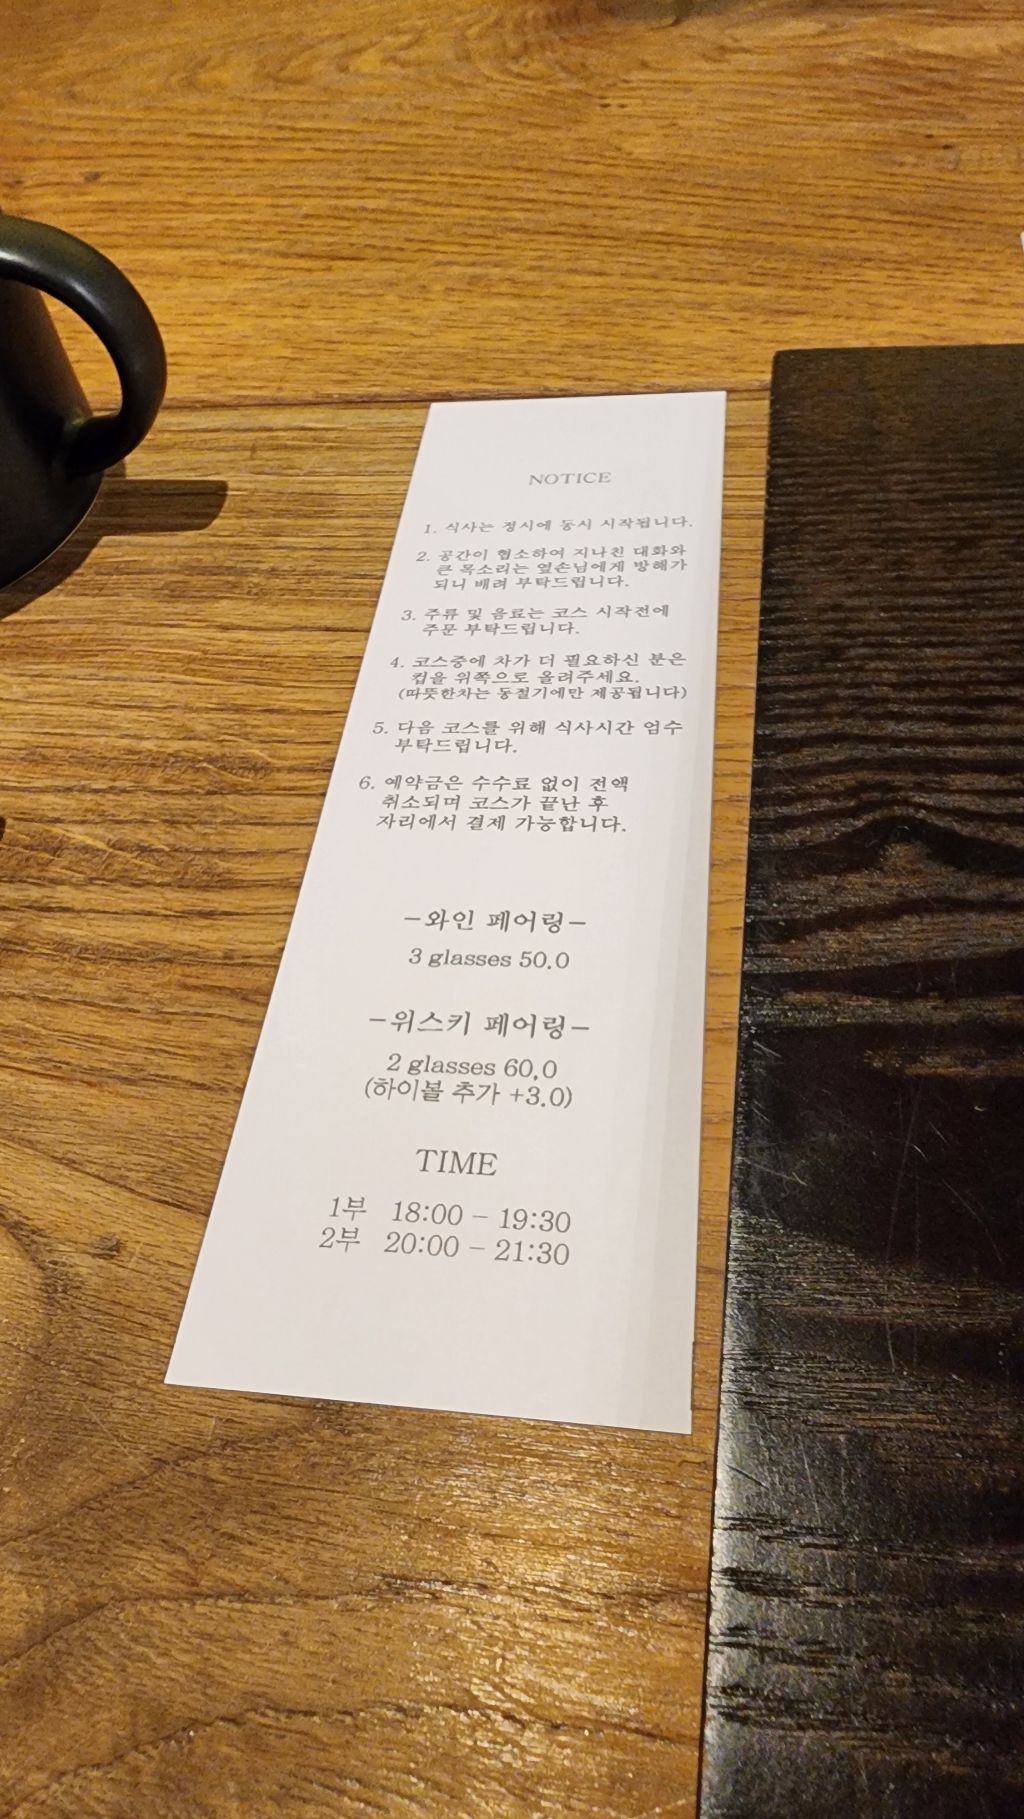 NOTICE
1. 식사는 정시에 동시 시작됩니다.
2. 공간이 협소하여 지나친 대화와
큰 목소리는 옆손님에게 방해가
되니 배려 부탁드립니다.
3. 주류 및 음료는 코스 시작전에
주문 부탁드립니다.
4. 코스중에 차가 더 필요하신 분은
컵을 위쪽으로 올려주세요.
(따뜻한차는 동절기에만 제공됩니다)
5. 다음 코스를 위해 식사시간 엄수
부탁드립니다.
6. 예약금은 수수료 없이 전액
취소되며 코스가 끝난 후
자리에서 결제 가능합니다.
-와인 페어링-
3 glasses 50.0
-위스키 페어링-
2 glasses 60.0
(하이볼 추가 +3.0)
TIME
1부 18:00 - 19:30
2부 20:00 - 21:30